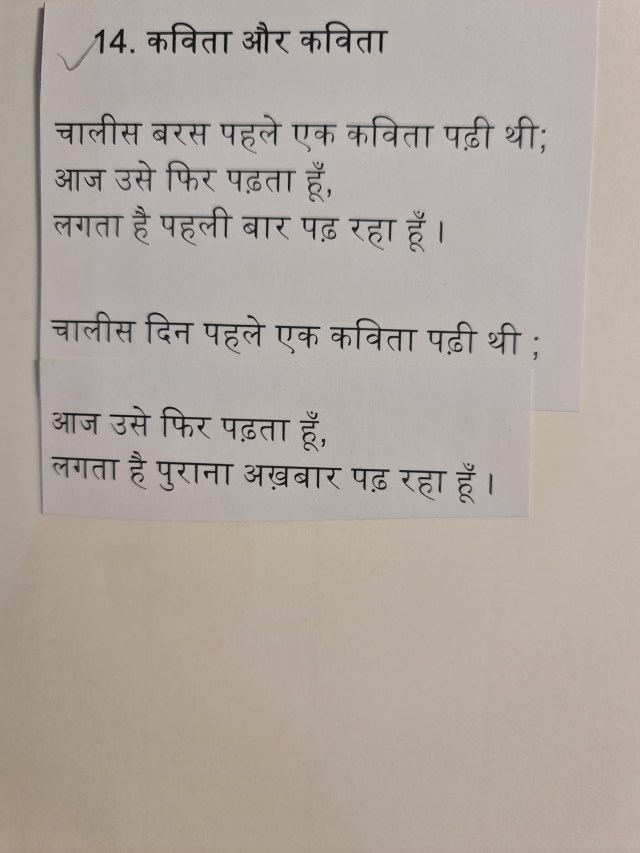 14. कविता और कविता
चालीस बरस पहले एक कविता पढ़ी थी;
आज उसे फिर पढ़ता हूँ,
लगता है पहली बार पढ़ रहा हूँ ।
चालीस दिन पहले एक कविता पढ़ी थी ;
आज उसे फिर पढ़ता हूँ,
लगता है पुराना अख़बार पढ़ रहा हूँ ।